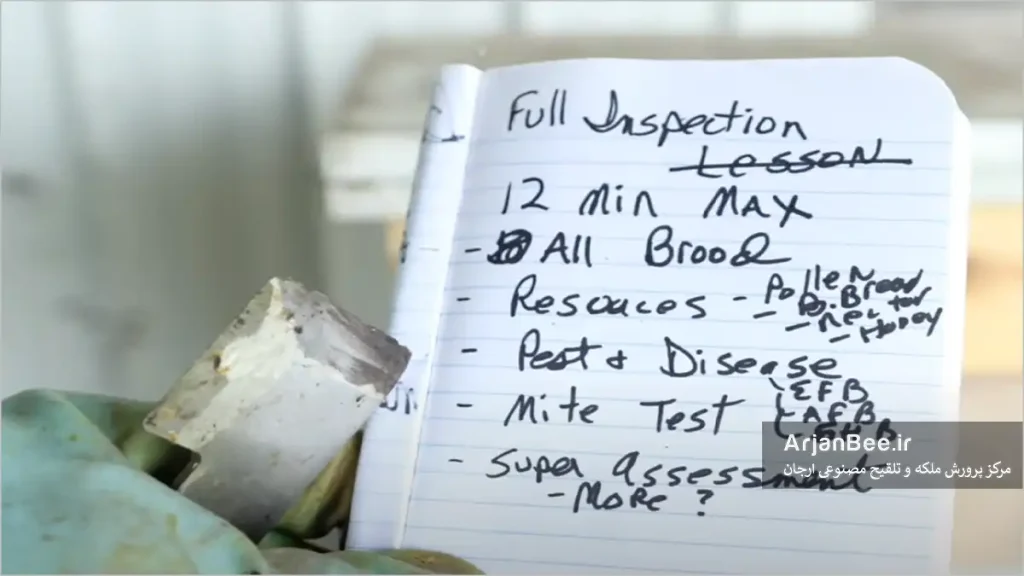 Full Inspection
Lesson
12 Min Max
- All Brood
- Resouces - Pollen
- Po. Bread
- Nectar
- Honey
- Pest & Disease
- EFB
- AFB
- SHB
- Mite Test
- Super Assessment
- More ?
ArjanBee.ir
مرکز پرورش ملکه و تلقیح مصنوعی ارجان